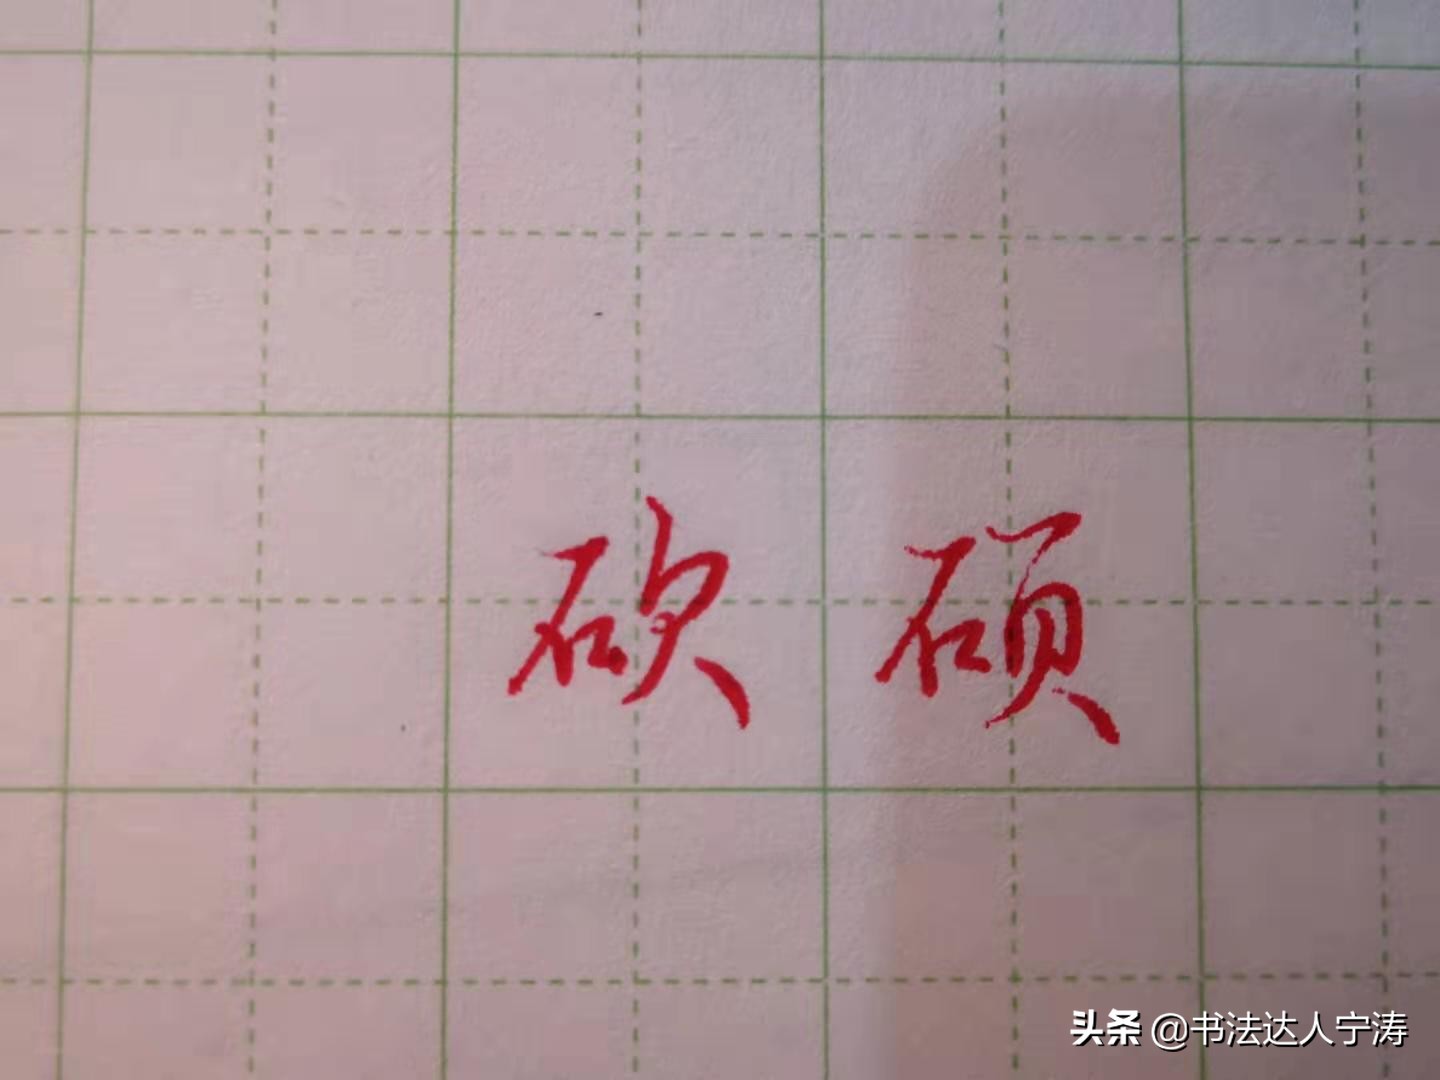 砍 硕
头条 @书法达人宁涛